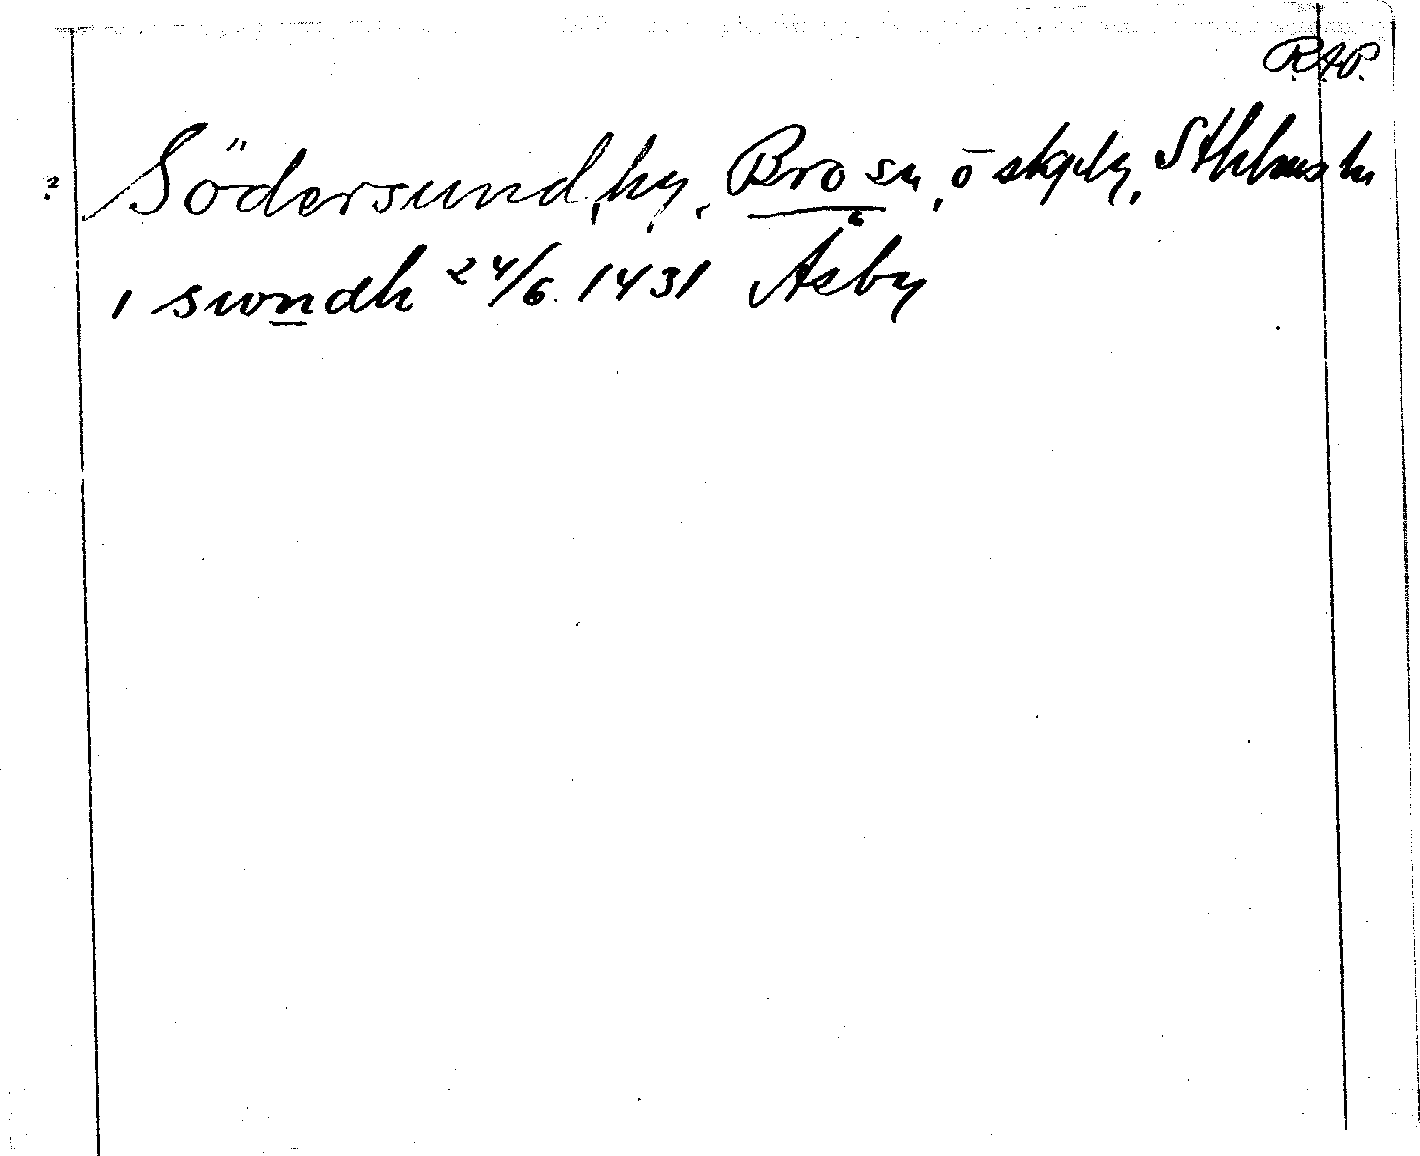 R.A.P.
? Södersund, by, Bro sn, ō skply, Sthlms ln
i swndh 24/6. 1431 Åsby